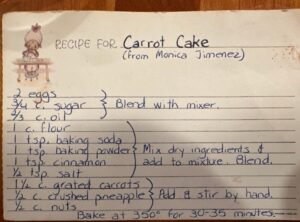 RECIPE FOR Carrot Cake
(from Monica Jimenez)
2 eggs
3/4 c. sugar } Blend with mixer.
2/3 c. oil
1 c. flour
1 tsp. baking soda
1 tsp. baking powder } Mix dry ingredients &
1 tsp. cinnamon add to mixture. Blend.
1/2 tsp. salt
1 1/2 c. grated carrots
1/2 c. crushed pineapple } Add & stir by hand.
1/2 c. nuts
Bake at 350° for 30-35 minutes.